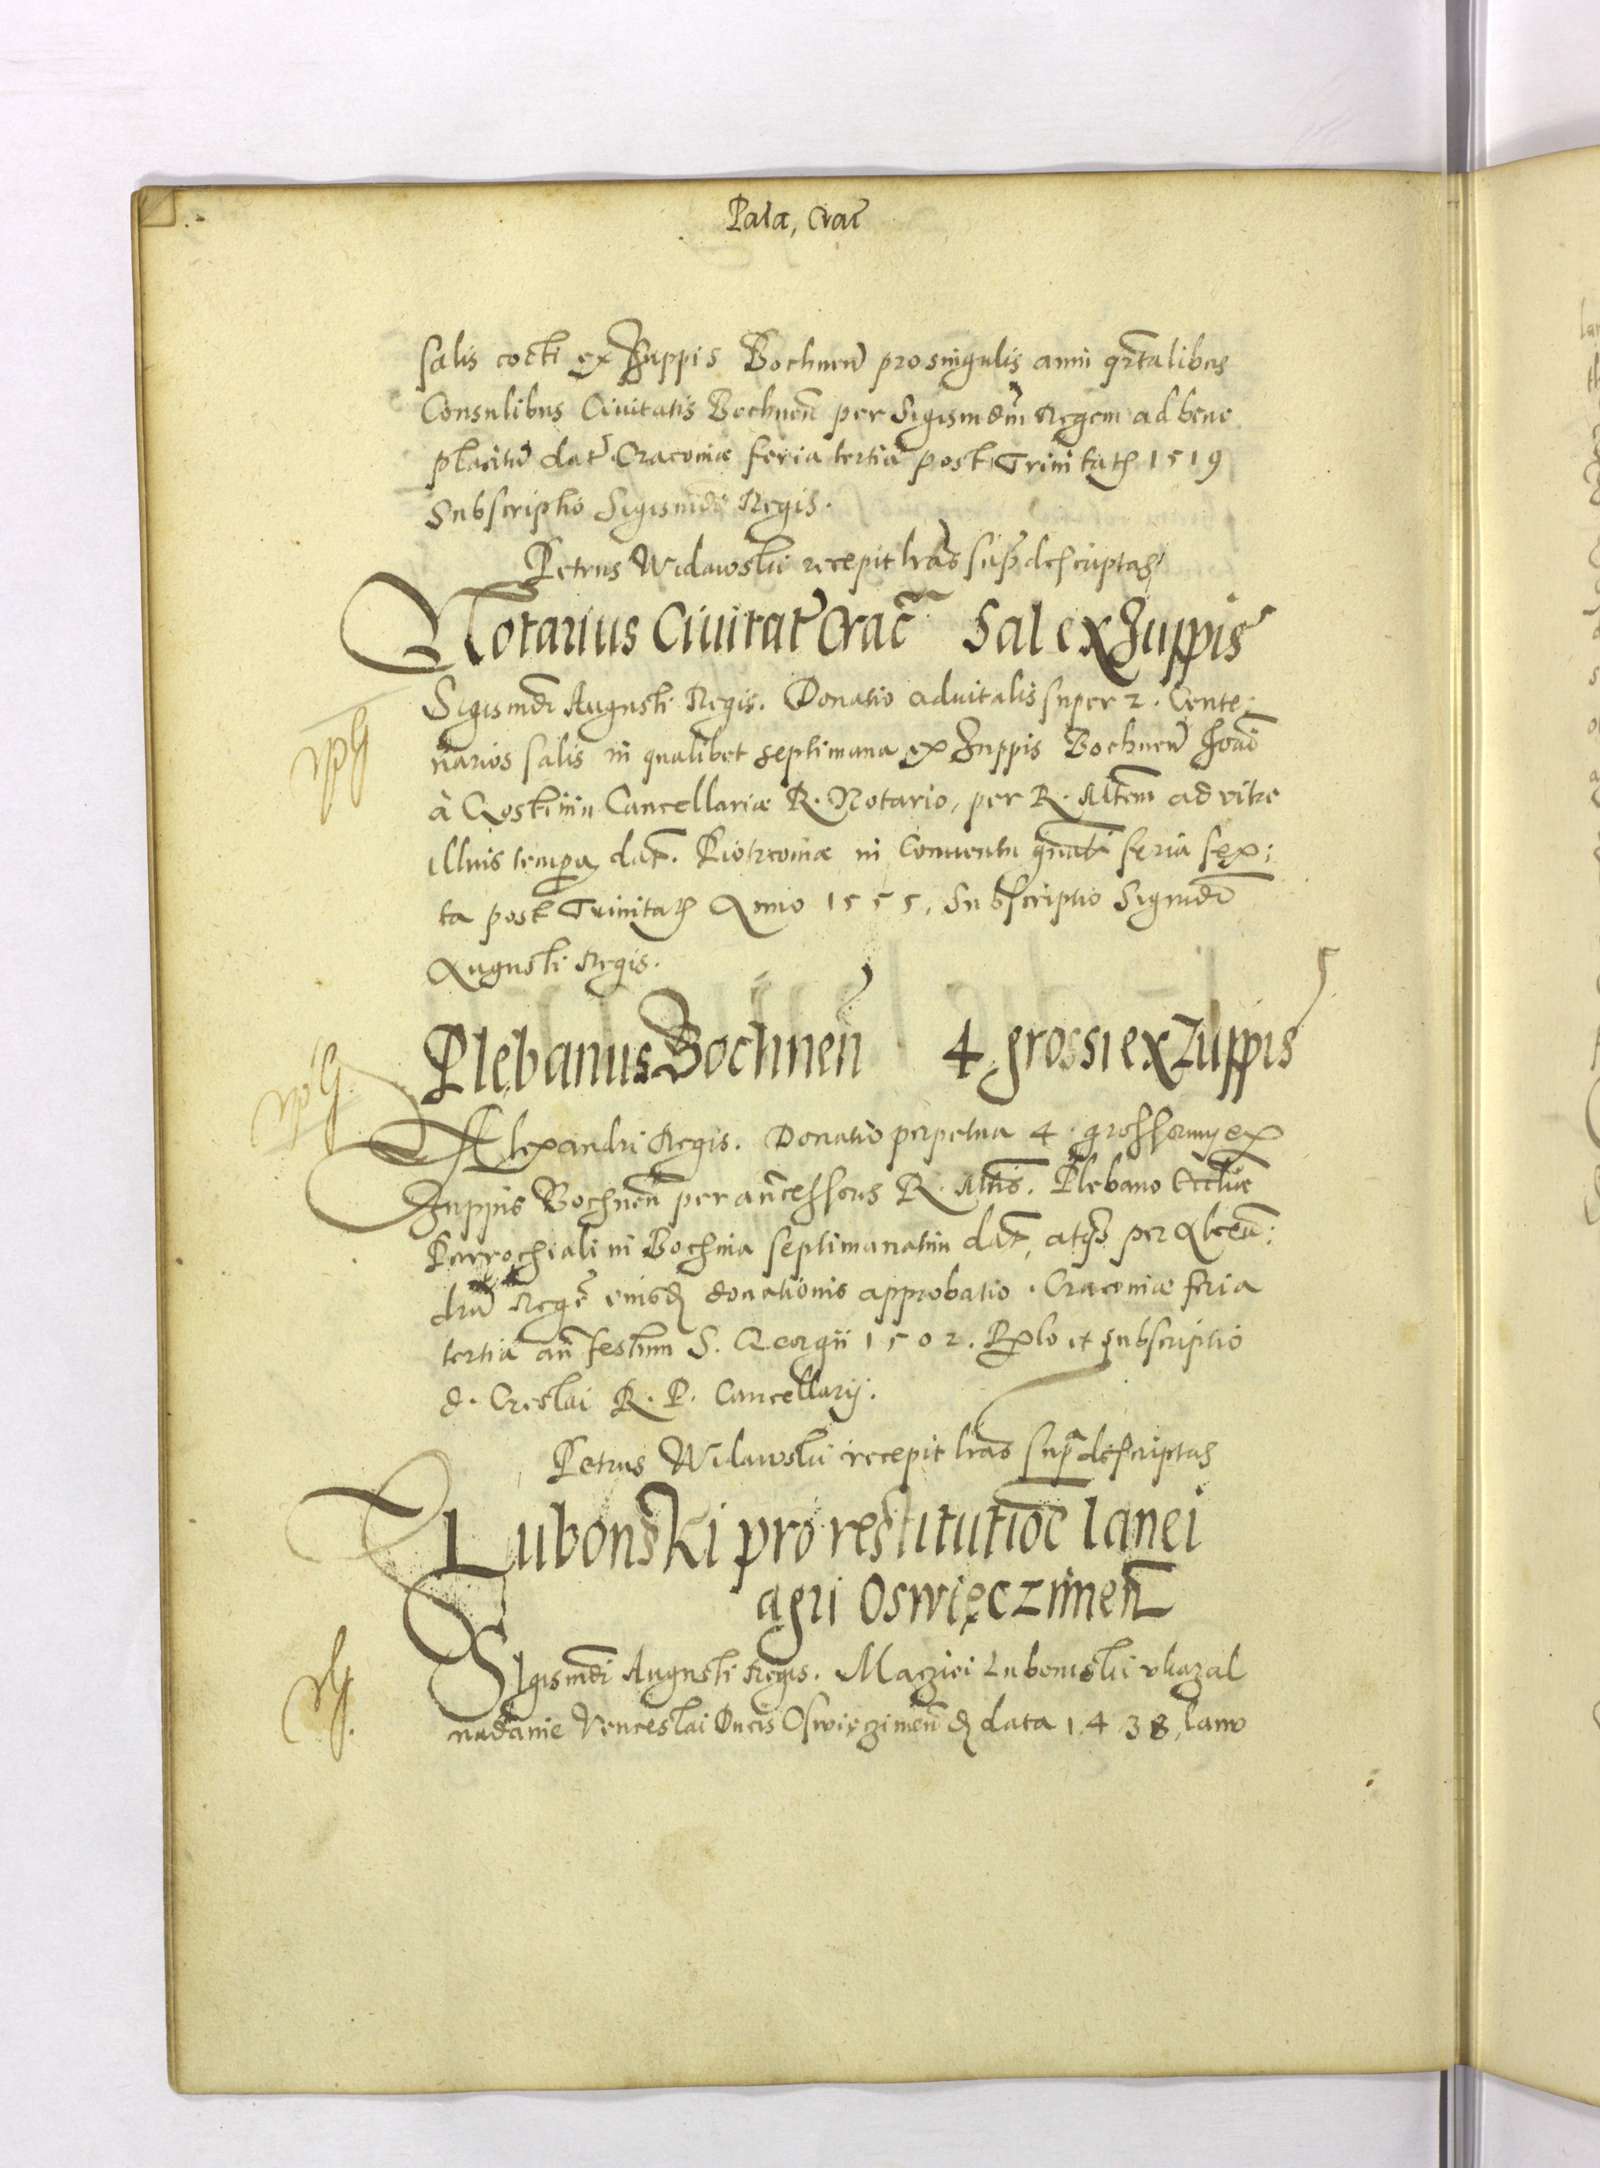 Pala, Crac̃
salis cocti ex Zuppis Bochneñ pro singulis anni qr̃talibus
Consulibus Civitatis Bochneñ per Sigismdũ Regem ad bene
placitũ dat̃ Cracoviæ feria tertia post Trinitatꝫ 1519
Subscriptio Sigismdi Regis.
Petrus Widawski recepit lr̃as supr̃ descriptas
Notarius Civitat̃ Crac̃ Sal ex Zuppis
Sigismdi Augusti Regis. Donatio advitalis super 2. Cente-
narios salis in qualibet septimana ex Zuppis Bochneñ Joañi
à Cancellariæ R. Notario, per R. Mtem ad vitæ
illius tempora dat̃. Piotrcoviæ in Conventu gñali feria sex:
ta post Trinitatꝫ Anno 1555. Subscriptio Sigmdi
Augusti Regis.
Plebanus Bochneñ 4 grossi ex Zuppis
Alexandri Regis. Donatio perpetua 4. grossorum ex
Zuppis Bochneñ per añcessores R. Mtis. Plebano Eccliæ
Parrochiali in Bochnia septimanatim dat̃, atqꝫ per Alexañ:
drũ Regẽ eiusdꝫ donationis approbatio. Cracoviæ feria
tertia añ festum S. Georgii 1502. Rlo et subscriptio
d. Creslai R. P. Cancellarij.
Petrus Widawski recepit lr̃as supr̃ descriptas
Lubonski pro restitutioẽ lanei
agri Oswięczimeñ
Sigismdi Augusti Regis. Maciei Lubonski ukazal
nadanie Venceslai Ducis Oswięczimeñ dꝫ data 1438, lanw